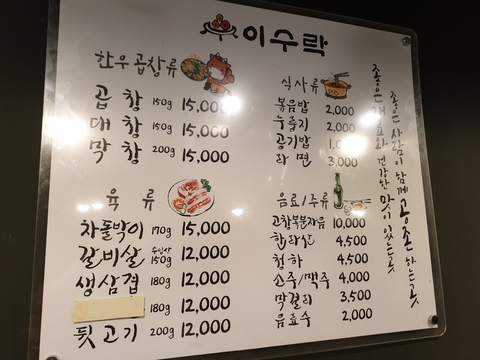 이수락
한우곱창류
곱창 150g 15,000
대창 150g 15,000
막창 200g 15,000
육류
차돌박이 170g 15,000
갈비살 150g 12,000
생삼겹 180g 12,000
180g 12,000
뒷고기 200g 12,000
식사류
볶음밥 2,000
누룽지 2,000
공기밥
라면 3,000
음료/주류
고창복분자음 10,000
한라산 4,500
청하 4,500
소주/맥주 4,000
막걸리 3,500
음료수 2,000
좋은 건강한 맛이 있는 곳
좋은 사람이 함께 공존하는 곳